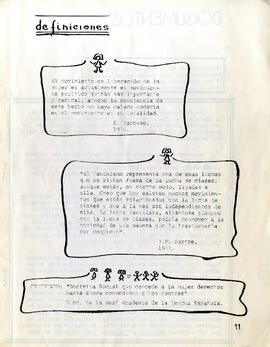 definiciones
El movimiento de liberación de la
mujer es actualmente el movimien-
to político quizás más importante
y radical, aunque la conciencia de
este hecho no haya calado todavía
en el movimiento en su totalidad.
H. Marcuse.
"El feminismo representa una de esas luchas
que se sitúan fuera de la lucha de clases,
aunque están, en cierto modo, ligadas a
ella. Creo que hoy existen muchos movimien-
tos que están relacionados con la lucha de
clases, y que a la vez son independientes de
ella. La lucha feminista, aliándose siempre
con la lucha de clases, podría conmover a la
sociedad de una manera que la trastornaría
por completo".
J.P. Sartre.
1977.
FEMINISMO: "Doctrina Social que concede a la mujer derechos
hasta ahora concedidos a los hombres"
Dicc. de la Real Academia de la Lengua Española.
11